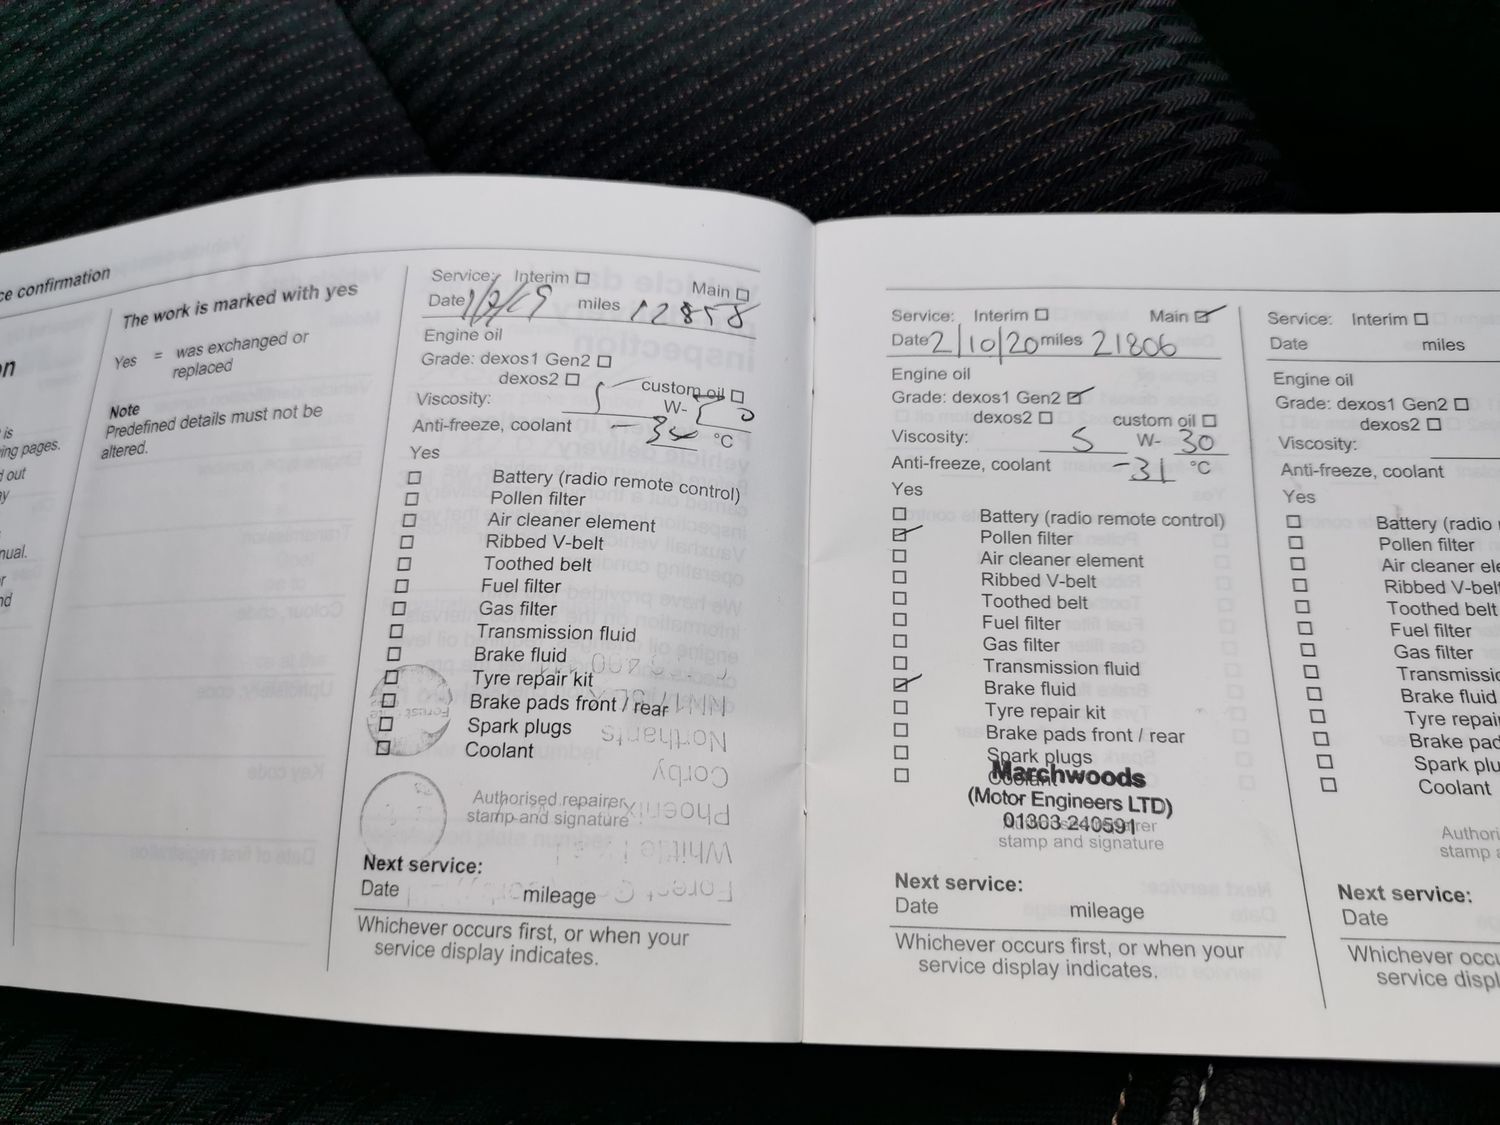 ce confirmation
on
is
ing pages.
d out
ay
s.
nual.
or
nd
The work is marked with yes
Yes = was exchanged or
replaced
Note
Predefined details must not be
altered.
Service: Interim ☐ Main ☐
Date miles 12858
Engine oil
Grade: dexos1 Gen2 ☐
dexos2 ☐ custom oil ☐
Viscosity: W-
Anti-freeze, coolant °C
Yes
☐ Battery (radio remote control)
☐ Pollen filter
☐ Air cleaner element
☐ Ribbed V-belt
☐ Toothed belt
☐ Fuel filter
☐ Gas filter
☐ Transmission fluid
☐ Brake fluid
☐ Tyre repair kit
☐ Brake pads front / rear
☐ Spark plugs
☐ Coolant
Authorised repairer
stamp and signature
Next service:
Date mileage
Whichever occurs first, or when your
service display indicates.
Service: Interim ☐ Main ☑
Date 2/10/20 miles 21806
Engine oil
Grade: dexos1 Gen2 ☑
dexos2 ☐ custom oil ☐
Viscosity: 5 W- 30
Anti-freeze, coolant -31 °C
Yes
☐ Battery (radio remote control)
☑ Pollen filter
☐ Air cleaner element
☐ Ribbed V-belt
☐ Toothed belt
☐ Fuel filter
☐ Gas filter
☐ Transmission fluid
☑ Brake fluid
☐ Tyre repair kit
☐ Brake pads front / rear
☐ Spark plugs
☐ Coolant
Marchwoods
(Motor Engineers LTD)
01303 240591
stamp and signature
Next service:
Date mileage
Whichever occurs first, or when your
service display indicates.
Service: Interim ☐
Date miles
Engine oil
Grade: dexos1 Gen2 ☐
dexos2 ☐
Viscosity:
Anti-freeze, coolant
Yes
☐ Battery (radio
☐ Pollen filter
☐ Air cleaner ele
☐ Ribbed V-belt
☐ Toothed belt
☐ Fuel filter
☐ Gas filter
☐ Transmissio
☐ Brake fluid
☐ Tyre repair
☐ Brake pad
☐ Spark plu
☐ Coolant
Authori
stamp a
Next service:
Date
Whichever occu
service displ